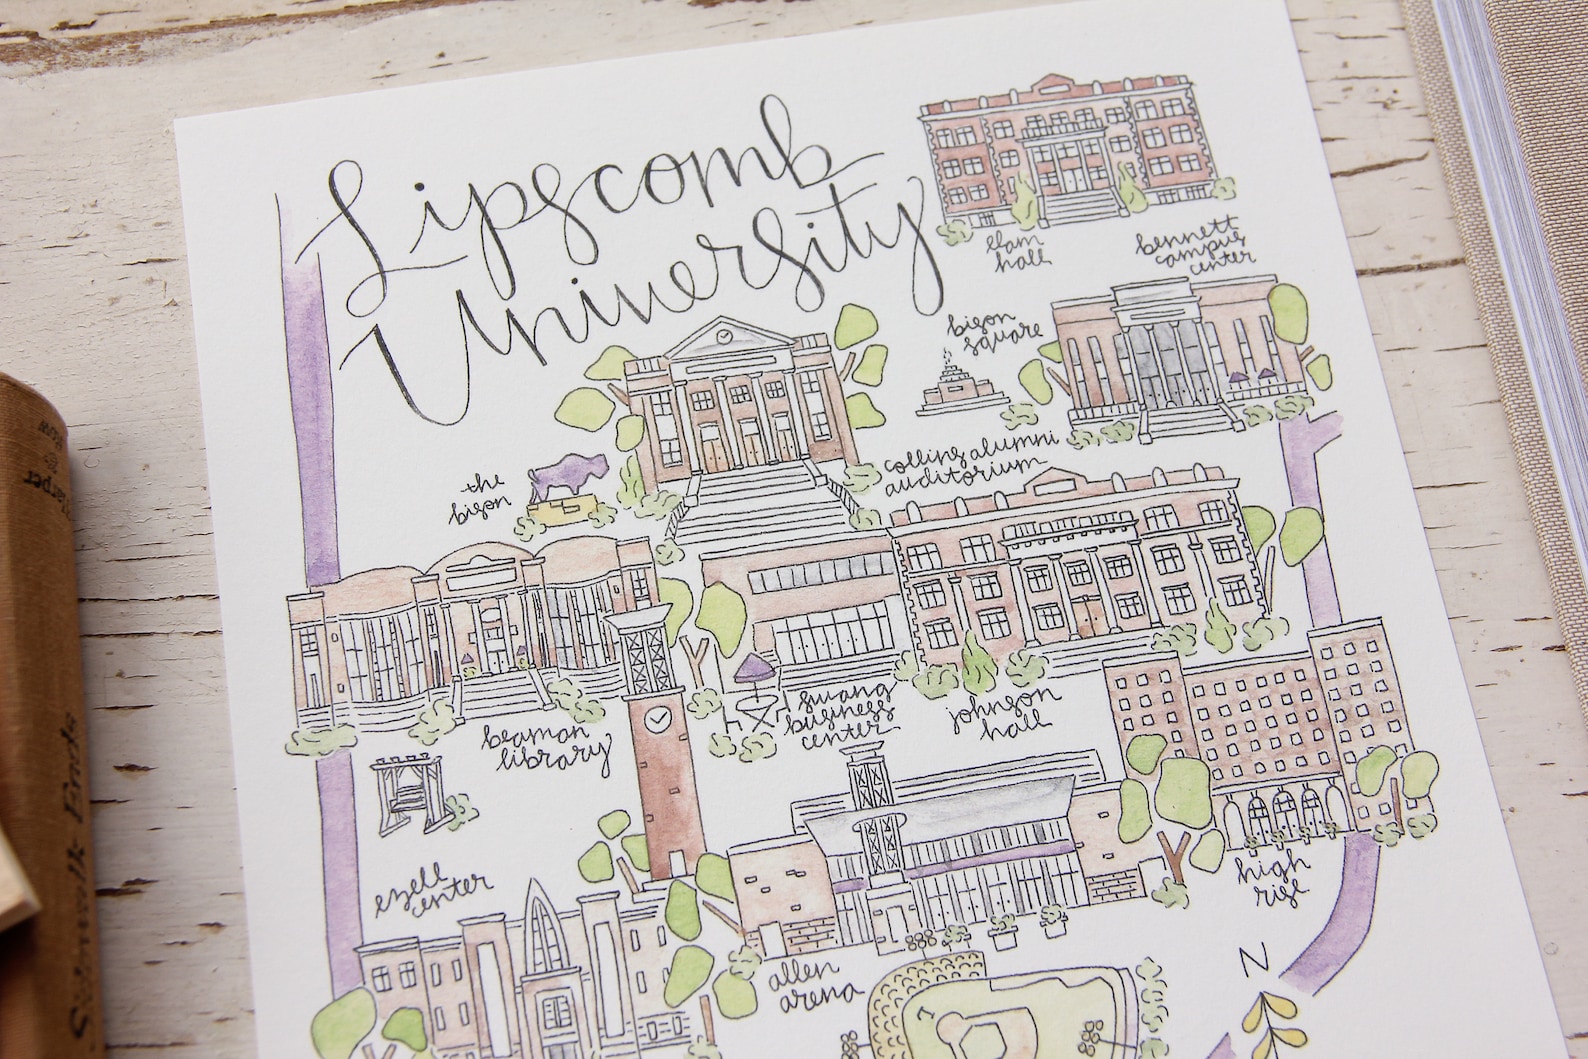 Lipscomb
University
elam
hall
bennett
campus
center
bison
square
collins alumni
auditorium
the
bison
beaman
library
swang
business
center
johnson
hall
ezell
center
allen
arena
high
rise
N